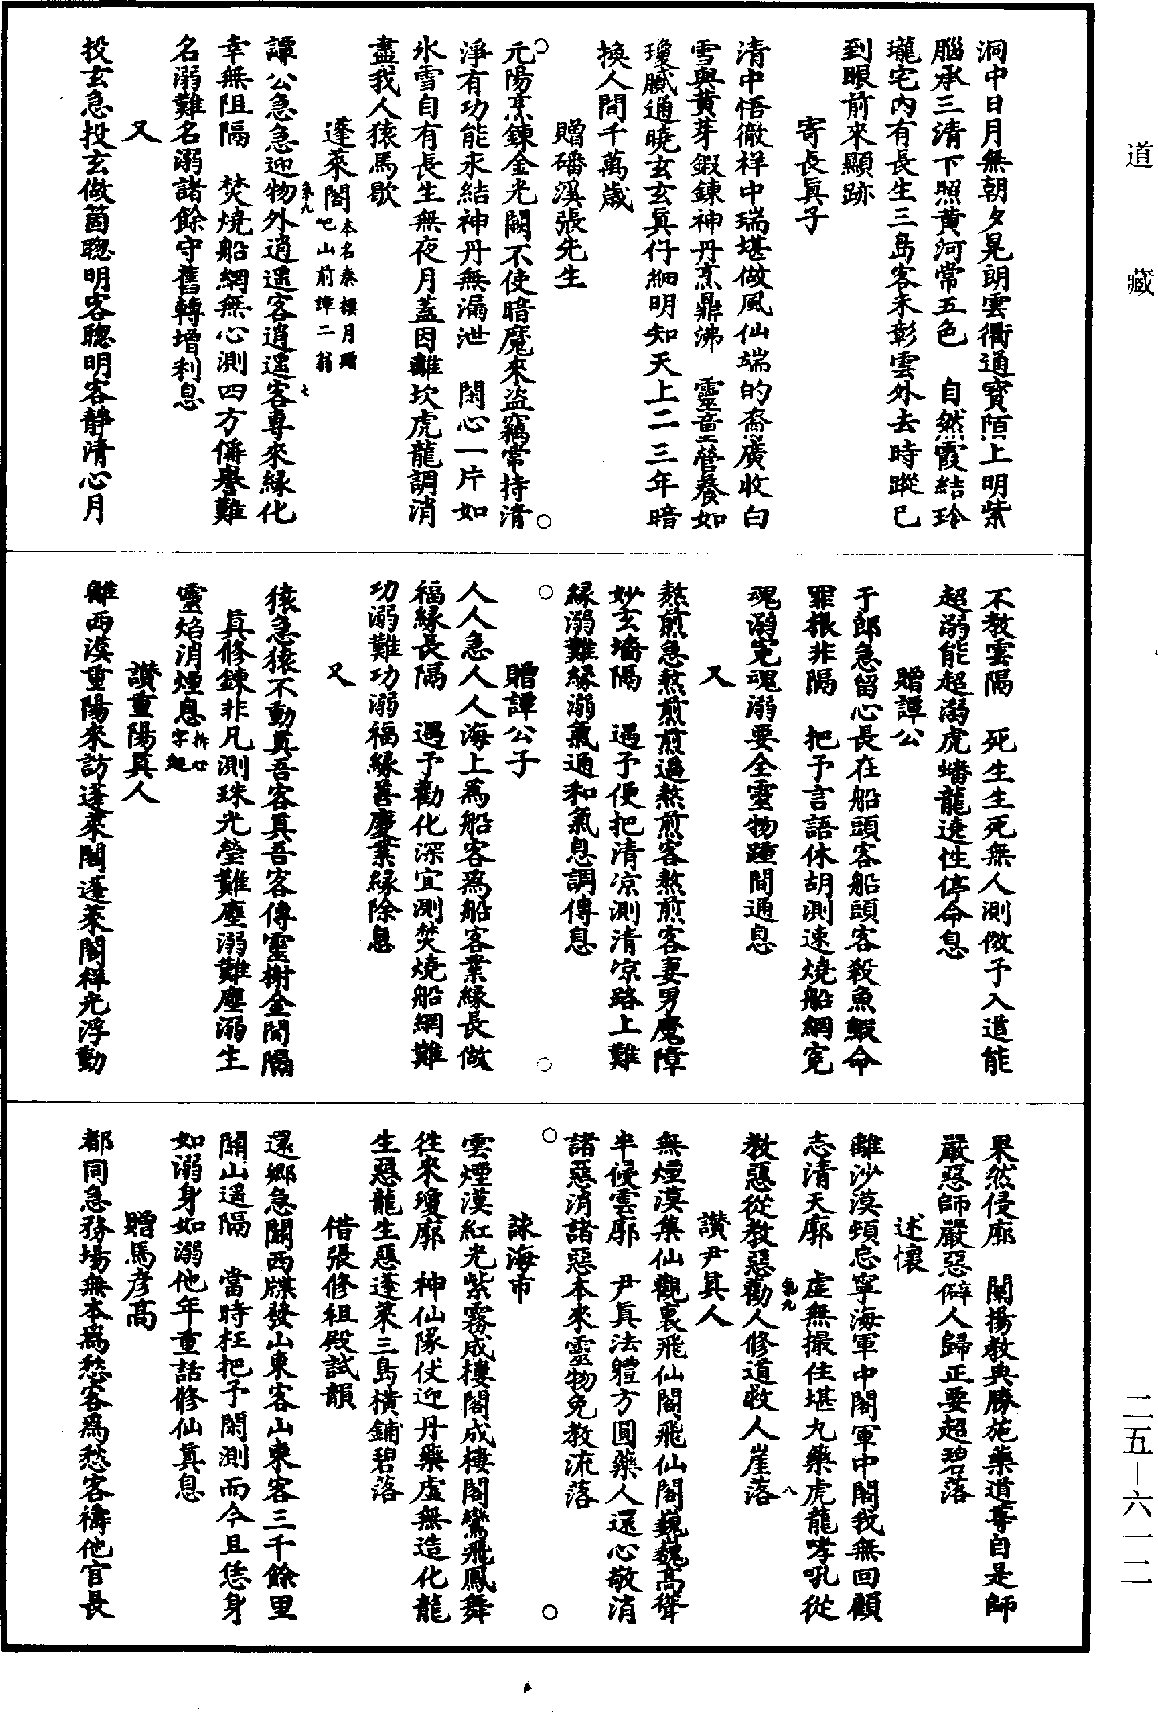 道藏
二五—六一二
洞中日月無朝夕晃朗雲衢通寳陌上明紫
腦承三清下照黄河常五色　自然霞結玲
瓏宅内有長生三島客未彰雲外去時蹤已
到眼前來顯跡
寄長眞子
清中悟徹祥中瑞堪做風仙端的裔廣收白
雪與黄芽鍜鍊神丹烹鼎沸　靈童營養如
瓊膩通曉玄玄眞仔細明知天上二三年暗
換人間千萬歲
贈磻溪張先生
元陽烹鍊金光闕不使暗魔來盗竊常持清
淨有功能永結神丹無漏泄　閑心一片如
氷雪自有長生無夜月蓋因離坎虎龍調消
盡我人猿馬歇
蓬萊閣本名秦樓月贈屺山前譚二翁
卷九　七
譚公急急迎物外逍遥客逍遥客專來緣化
幸無阻隔　焚燒船網無心測四方儕譽難
名溺難名溺諸餘守舊轉增利息
又
投玄急投玄做箇聰明客聰明客靜清心月
不教雲隔　死生生死無人測做予入道能
超溺能超溺虎蟠龍遶性停命息
贈譚公
于郎急留心長在船頭客船頭客殺魚鰕命
罪根非隔　把予言語休胡測速燒船網寃
魂溺寃魂溺要全靈物踵間通息
又
熬煎急熬煎煎過熬煎客熬煎客妻男魔障
妙玄墻隔　遇予便把清凉測清凉路上難
緣溺難緣溺氣通和氣息調傳息
贈譚公子
人人急人人海上爲船客爲船客業緣長做
福緣長隔　遇予勸化深宜測焚燒船網難
功溺難功溺福緣善慶業緣除息
又
猿急猿不動眞吾客眞吾客傳靈樹金間隔
　眞修鍊非凡測珠光瑩難塵溺難塵溺生
靈焰消煙息拆心字起
讚重陽眞人
離西漠重陽來訪蓬萊閣蓬萊閣祥光浮動
果然侵廓　闡揚教典勝施藥道尊自是師
嚴惡師嚴惡僻人歸正要超碧落
述懷
離沙漠頓忘寧海軍中閣軍中閣我無回顧
志清天廓　虚無撮住堪丸藥虎龍哮吼從
教惡從教惡勸人修道收人崖落
卷九　八
讚尹眞人
無煙漠集仙觀裏飛仙閣飛仙閣巍巍高聳
半侵雲廓　尹眞法體方圓藥人還心敬消
諸惡消諸惡本來靈物免教流落
詠海市
雲煙漠紅光紫霧成樓閣成樓閣鸞飛鳳舞
往來瓊廓　神仙隊仗迎丹藥虚無造化龍
生惡龍生惡蓬萊三島横鋪碧落
借張修祖殿試韻
還鄉急關西牒發山東客山東客三千餘里
關山遥隔　當時枉把予閑測而今且恁身
如溺身如溺他年重話修仙眞息
贈馬彦高
都同急務場無本爲愁客爲愁客禱他官長